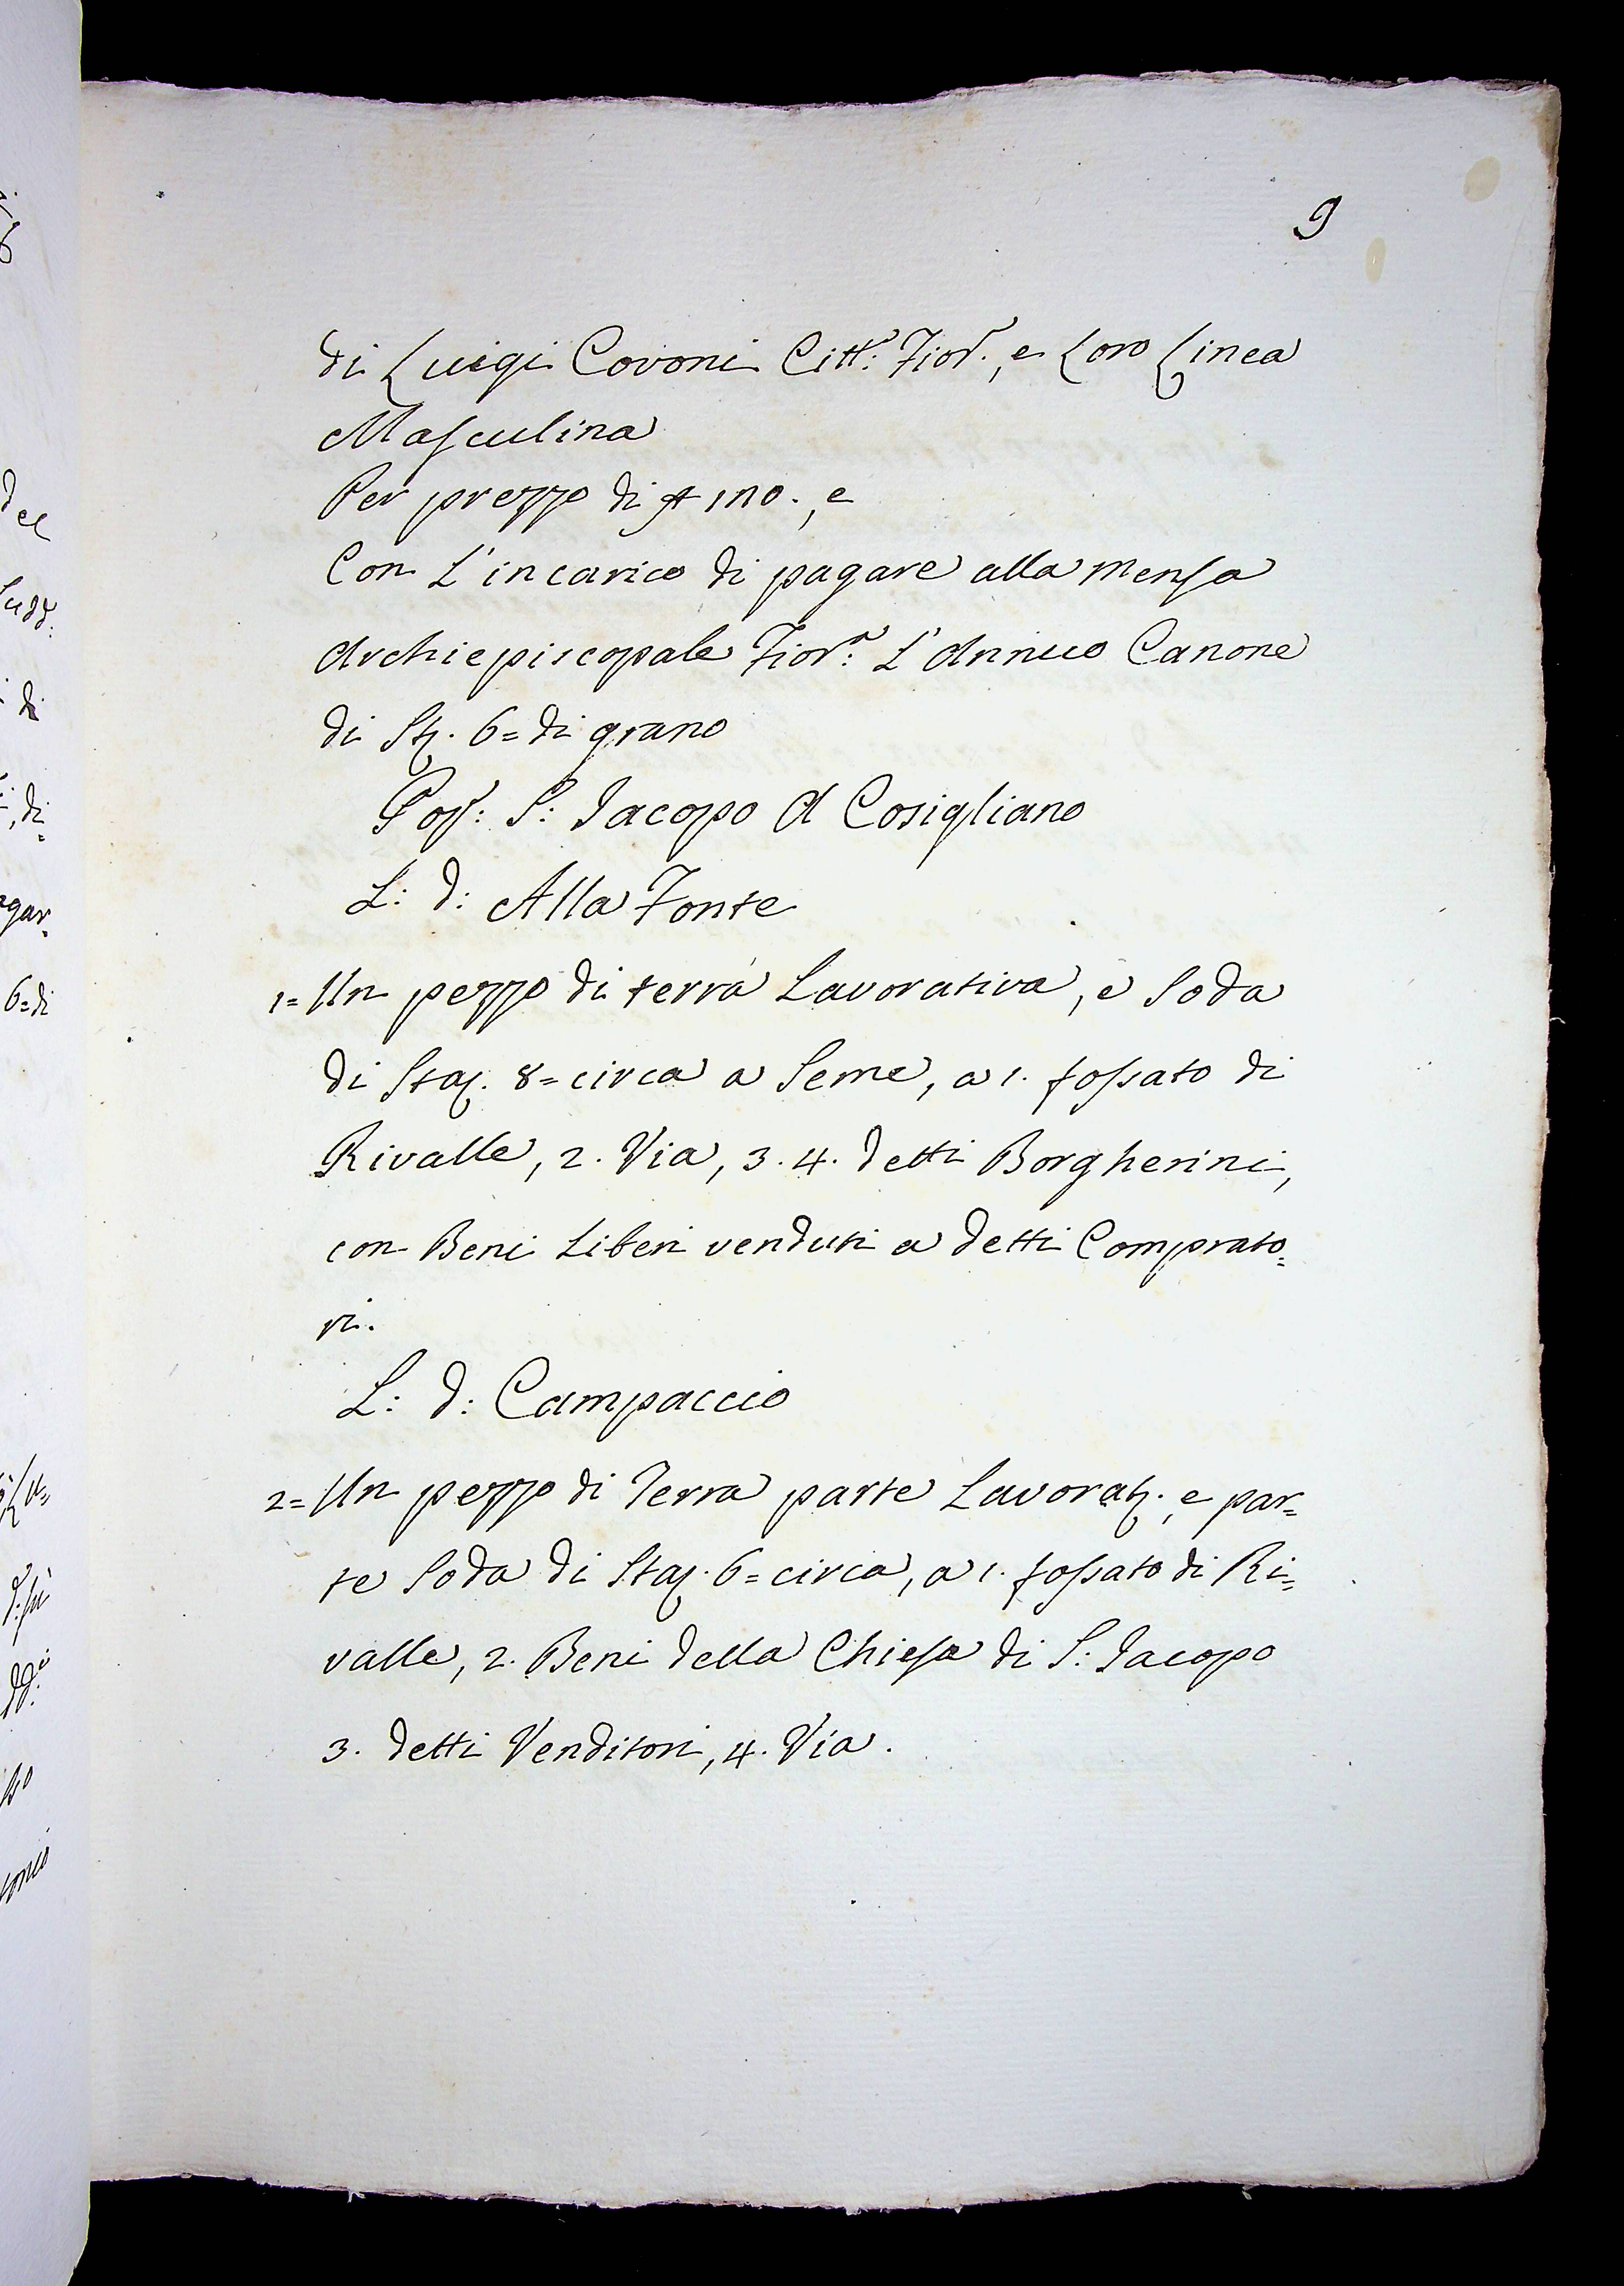 9
di Luigi Covoni Citt: Fior., e Loro Linea
Masculina
Per prezzo di 110., e
Con L'incarico di pagare alla mensa
Archiepiscopale Fior: L'Annuo Canone
di St. 6= di grano
Pop: S: Jacopo A Cosigliano
L: d: Alla Fonte
1= Un pezzo di terra Lavorativa, e Soda
di Staj. 8= circa a Seme, a 1. fossato di
Rivalle, 2. Via, 3. 4. detti Borgherini,
con Beni Liberi venduti a detti Comprato=
ri.
L: d: Campaccio
2= Un pezzo di Terra parte Lavorat., e par=
te Soda di Staj. 6= circa, a 1. fossato di Ri=
valle, 2. Beni della Chiesa di S: Jacopo
3. detti Venditori, 4. Via.